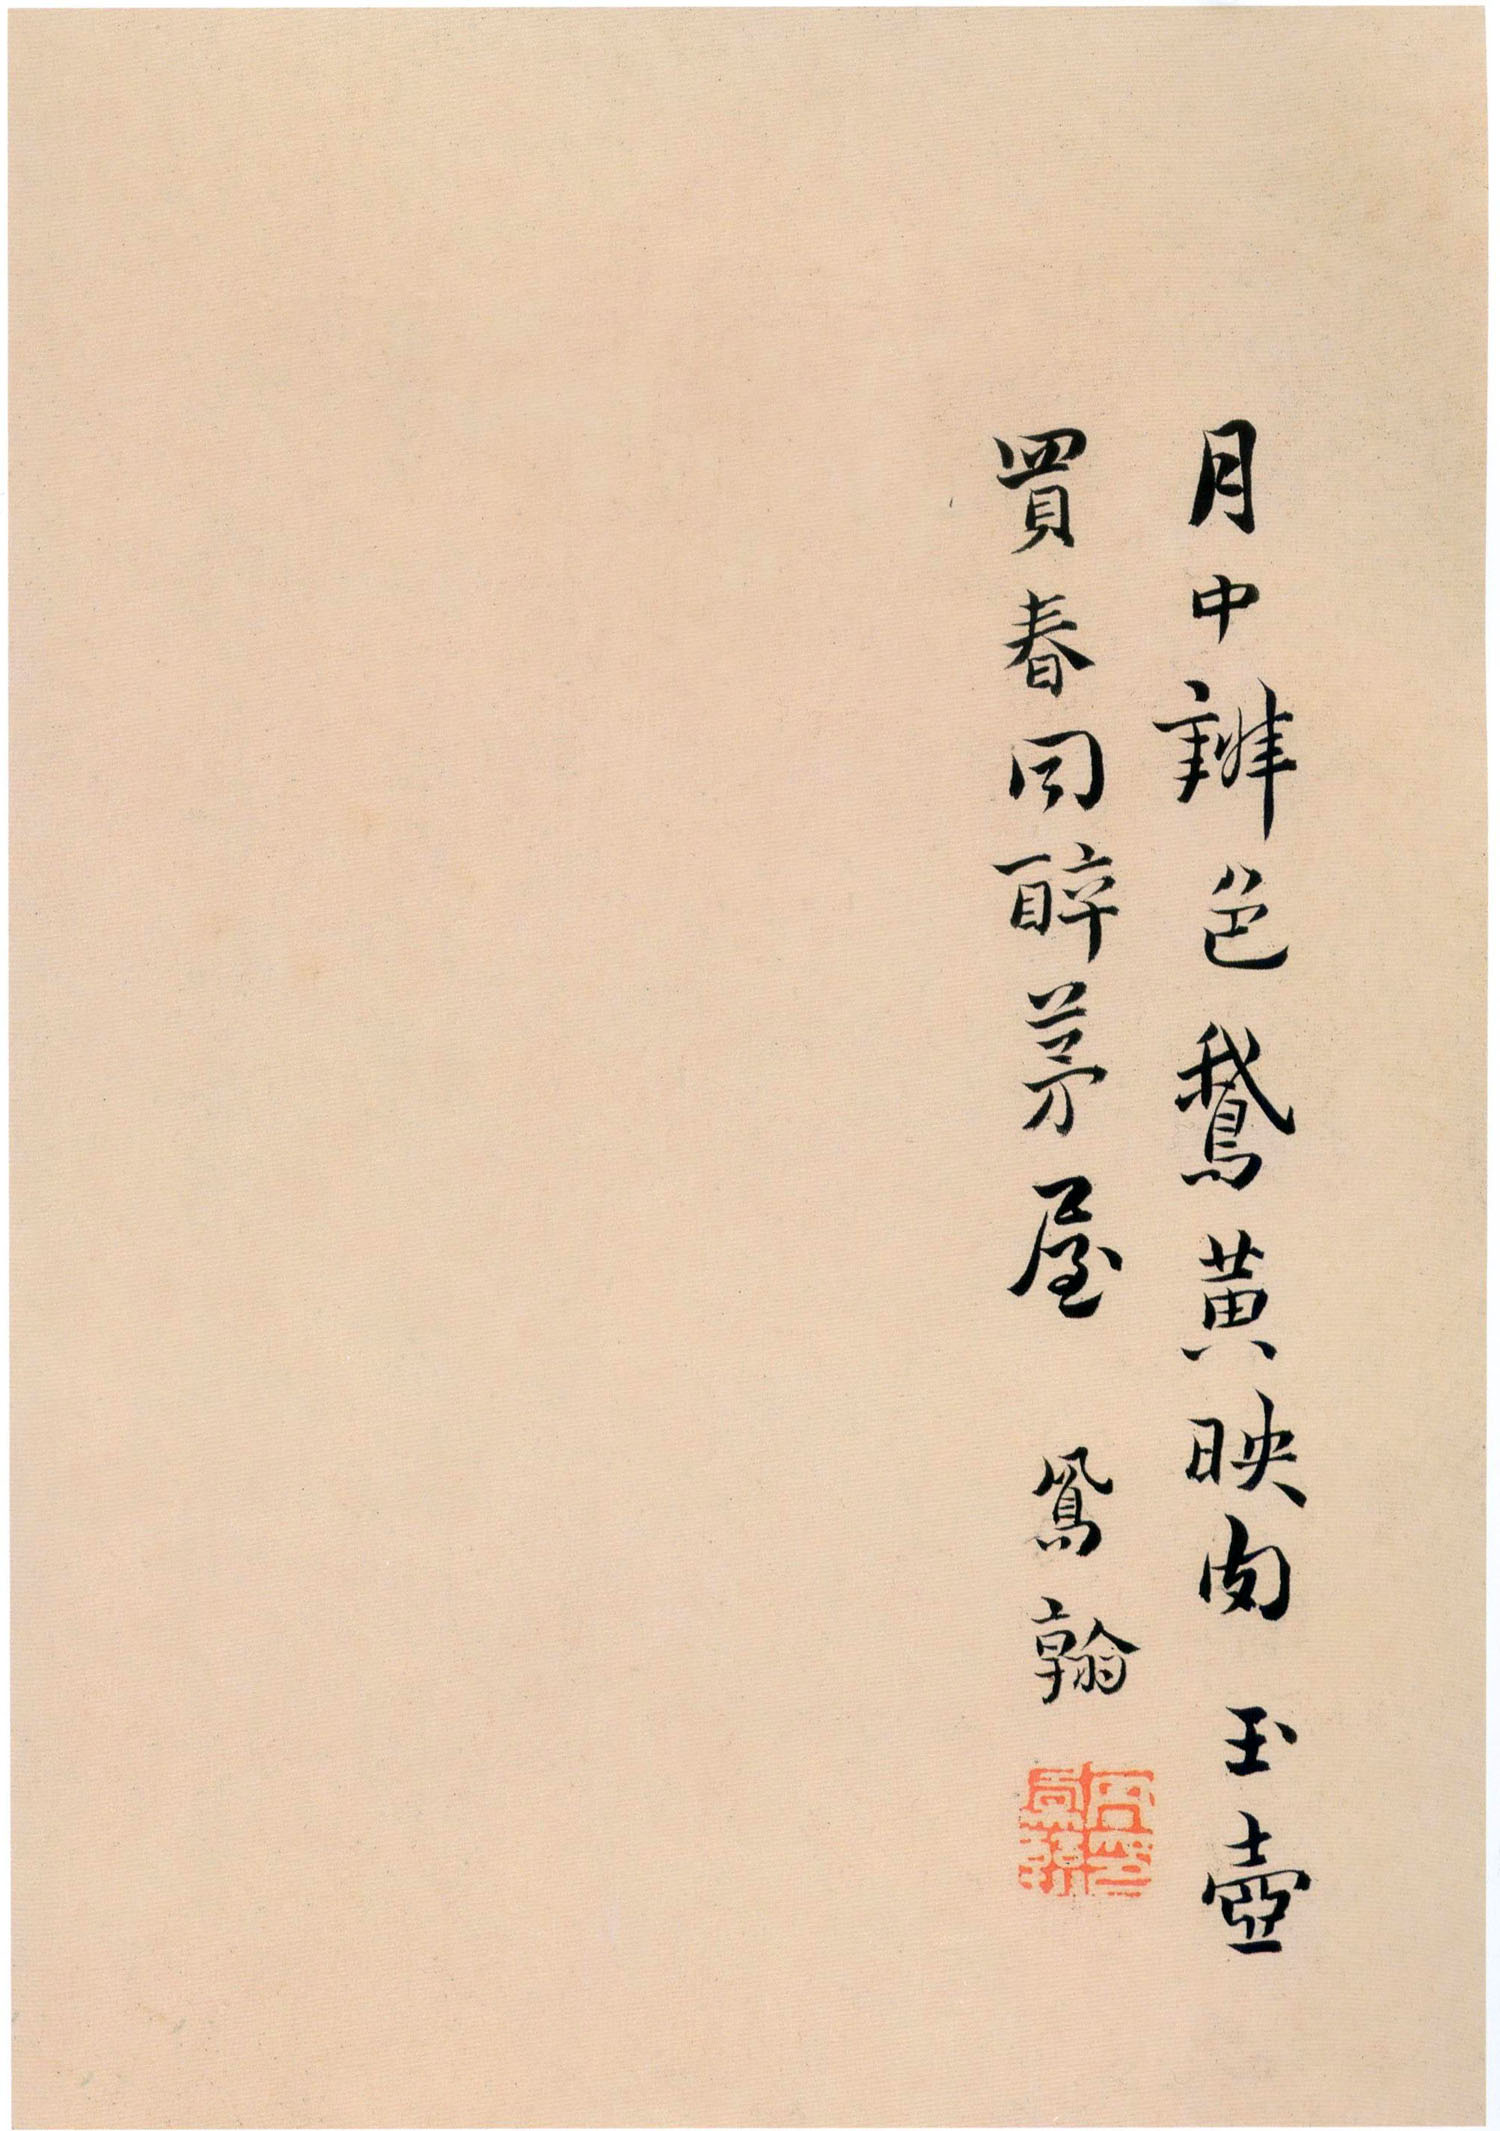 月中辨色鵞黃映肉玉壺
買春同醉茅屋 鳳翰